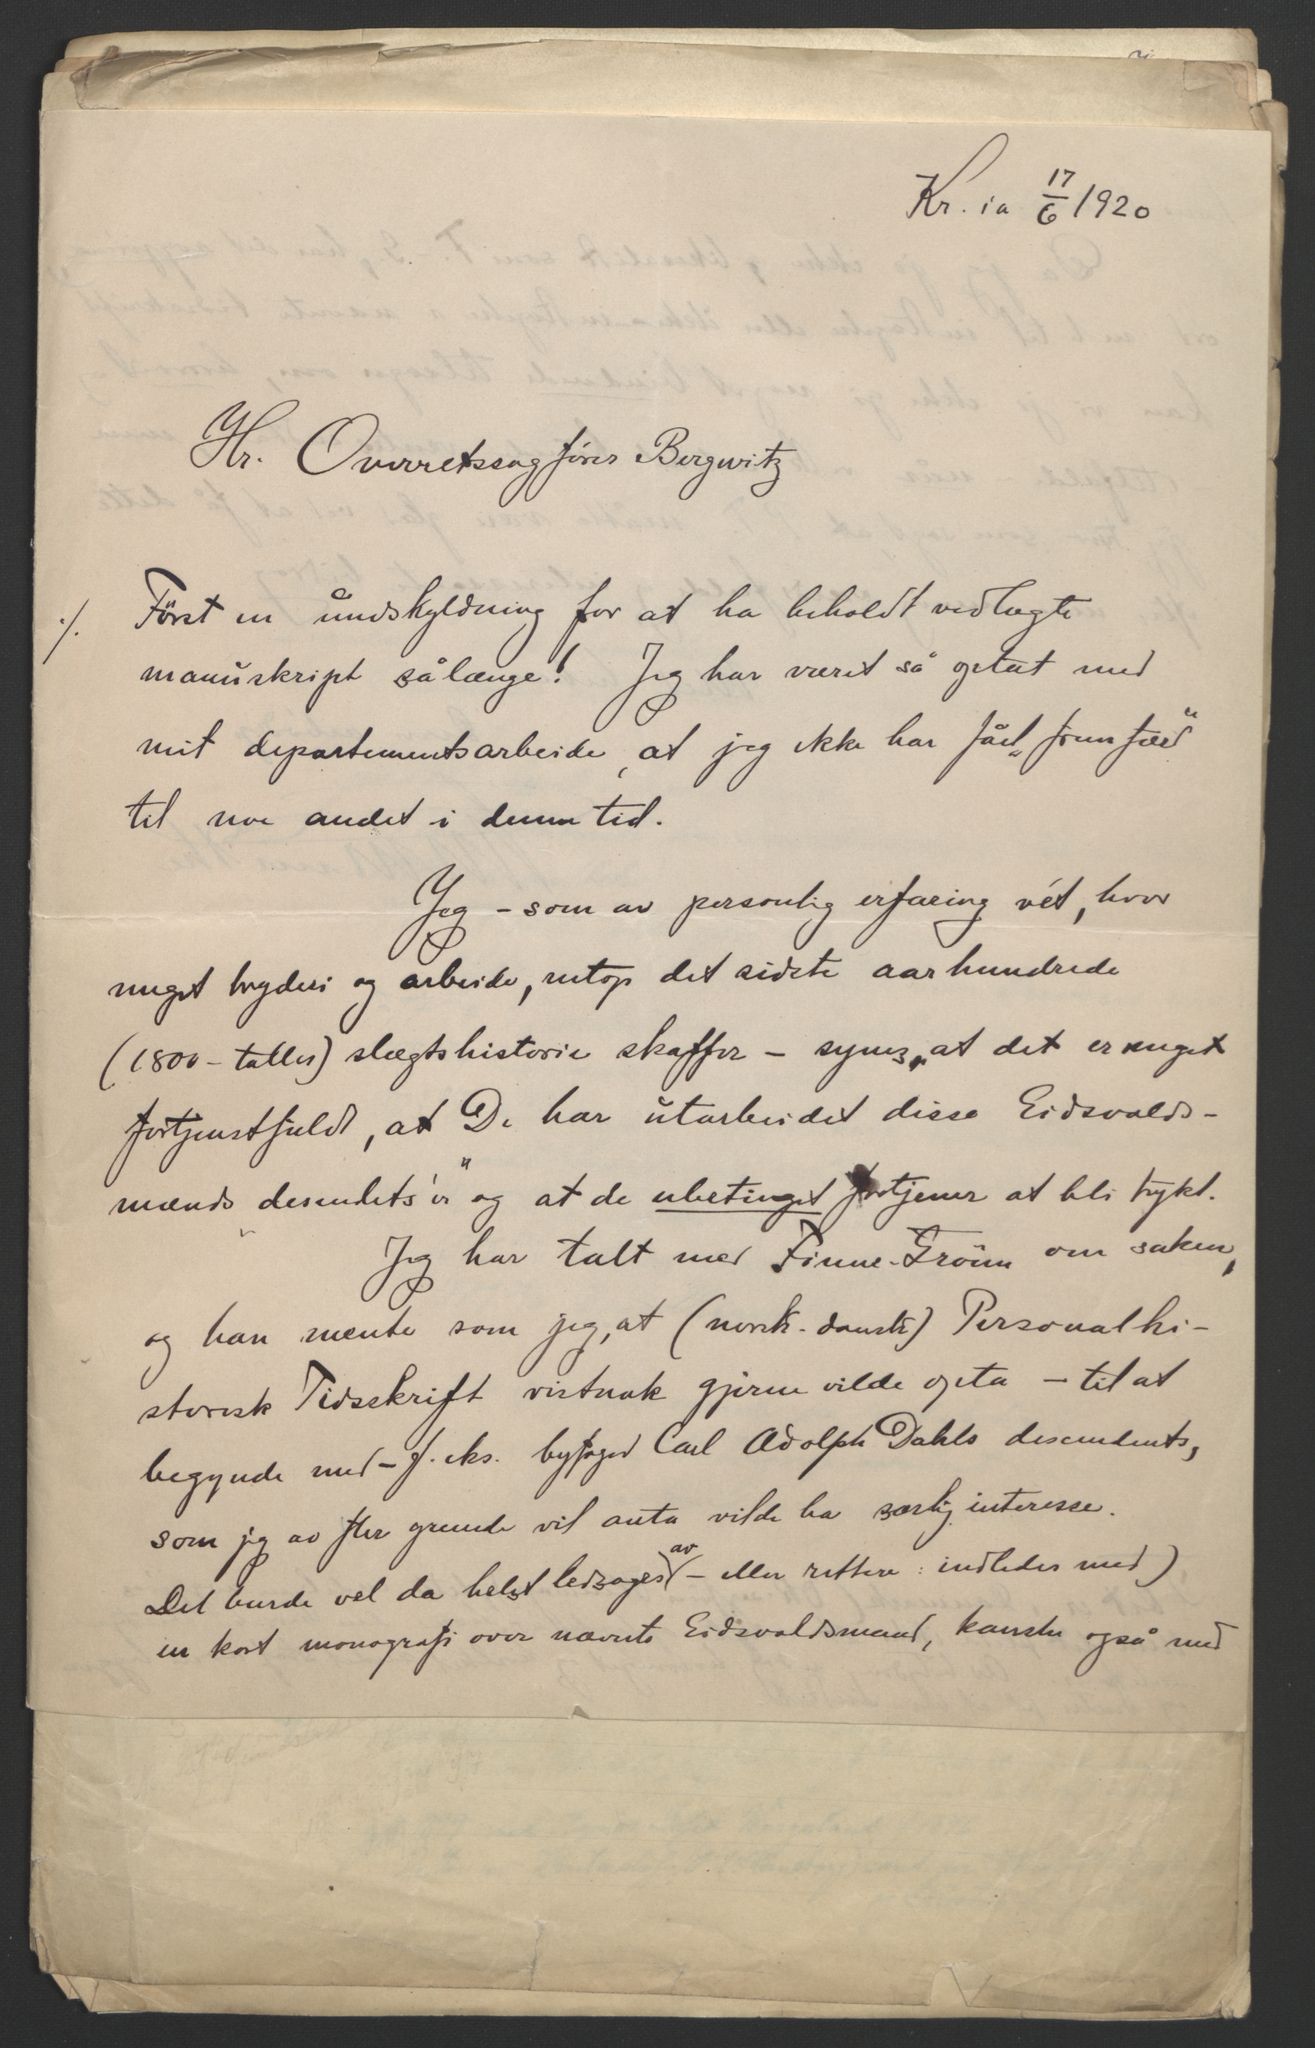 Kr.ia 17/6 1920
Hr. Overretssagfører Bergwitz
./. Først en undskyldning for at ha beholdt vedlagte
manuskript så længe! Jeg har været så optat med
mit departementsarbeide, at jeg ikke har fåt „frem færd“
til noe andet i denne tid.
Jeg – som av personlig erfaring vét, hvor
meget bryderi og arbeide, netop det sidste aarhundrede
(1800-tallet) slægtshistorie skaffer – synes, at det er meget
fortjenstfuldt, at De har utarbeidet disse Eidsvolds-
mænds „desendets'er“ og at de ubetinget fortjener at bli trykt.
Jeg har talt med Finne-Grönn om saken,
og han mente som jeg, at (norsk-dansk) Personalhi-
storisk Tidsskrift vistnok gjerne vilde opta – til at
begynde med – f. eks. byfoged Carl Adolph Dahls descendents,
som jeg av fler grunde vil anta vilde ha særlig interesse.
Det burde vel da helst ledsages av (– eller rettere: indledes med)
en kort monografi over nævnte Eidsvoldsmand, kanske også med